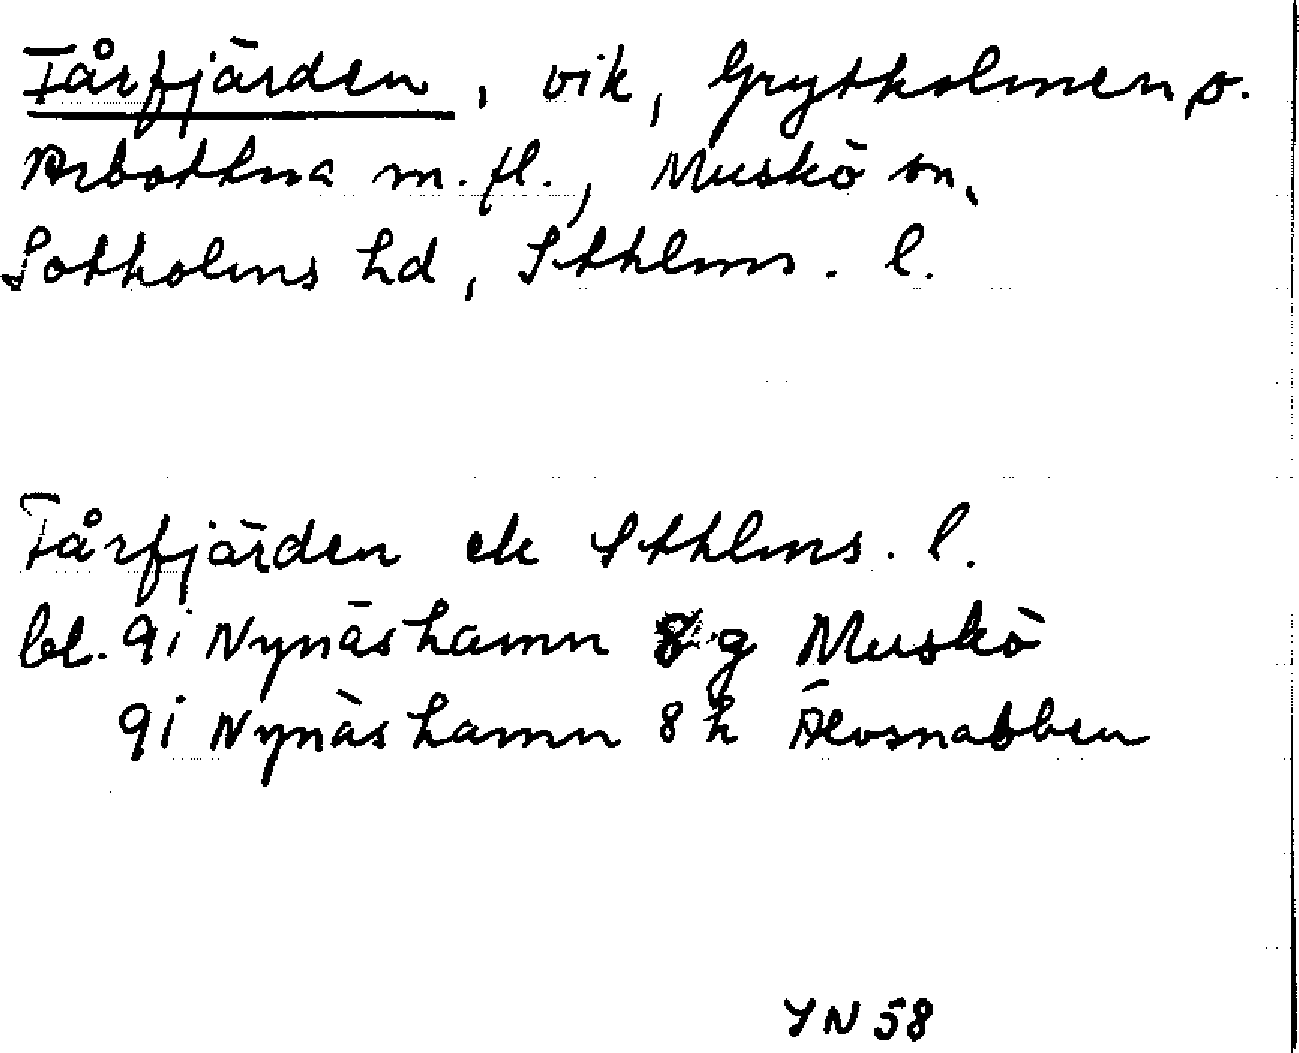 Fårfjärden, vik, Grytholmen, o.
Arbottna m. fl., Muskö sn,
Sotholms hd, Sthlms. l.
Fårfjärden ek Sthlms. l.
bl. 9i Nynäshamn 8 g Muskö
9i Nynäshamn 8 h Älvsnabben
YN 58